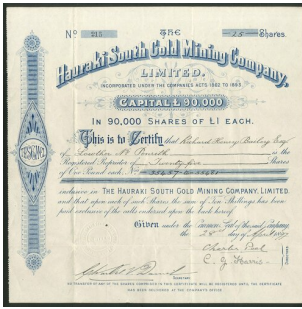 Nº 213 THE 25 Shares.
Hauraki South Gold Mining Company,
LIMITED.
INCORPORATED UNDER THE COMPANIES ACTS 1862 TO 1893
CAPITAL £ 90,000
IN 90,000 SHARES OF £1 EACH.
This is to Certify that Richard Henry
of Penrith is the
Registered Proprietor of Twenty five Shares
of One Pound each Nº
inclusive in THE HAURAKI SOUTH GOLD MINING COMPANY, LIMITED
and that upon each of such Shares the sum of Ten Shillings has been
paid inclusive of the calls endorsed upon the back hereof.
Given under the Common Seal of the said Company
the 28th day of April 1897
Charles
C. J. Harris
NO TRANSFER OF ANY OF THE SHARES COMPRISED IN THIS CERTIFICATE WILL BE REGISTERED UNTIL THE CERTIFICATE
HAS BEEN DELIVERED AT THE COMPANY'S OFFICE.